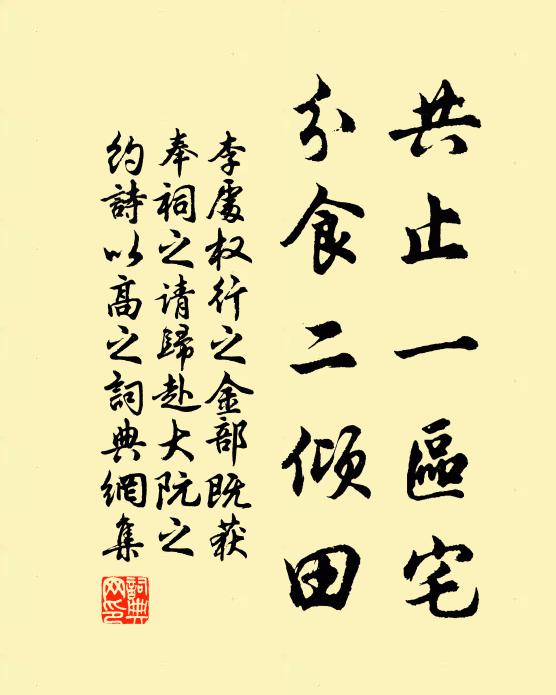 共止一區宅
分食二傾田
李處权行之金部既获
奉祠之请歸赴大阮之
约詩以高之詞典網集